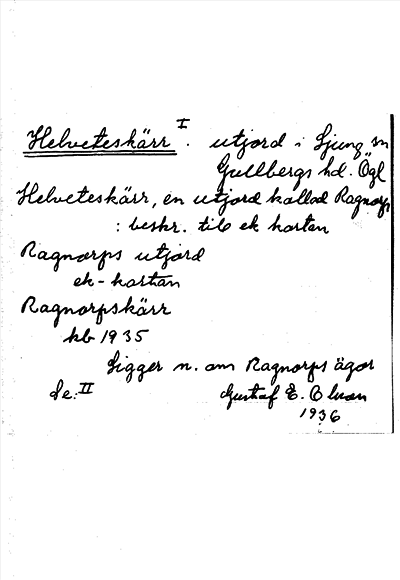 Helveteskärr I. utjord i Ljung sn
Gullbergs hd. Ögl
Helveteskärr, en utjord kallad Ragnorps
: beskr. till ek kartan
Ragnorps utjord
ek-kartan
Ragnorpskärr
kb 1935
Ligger n. om Ragnorps ägor
Se: II Gustaf E. Olsson
1936